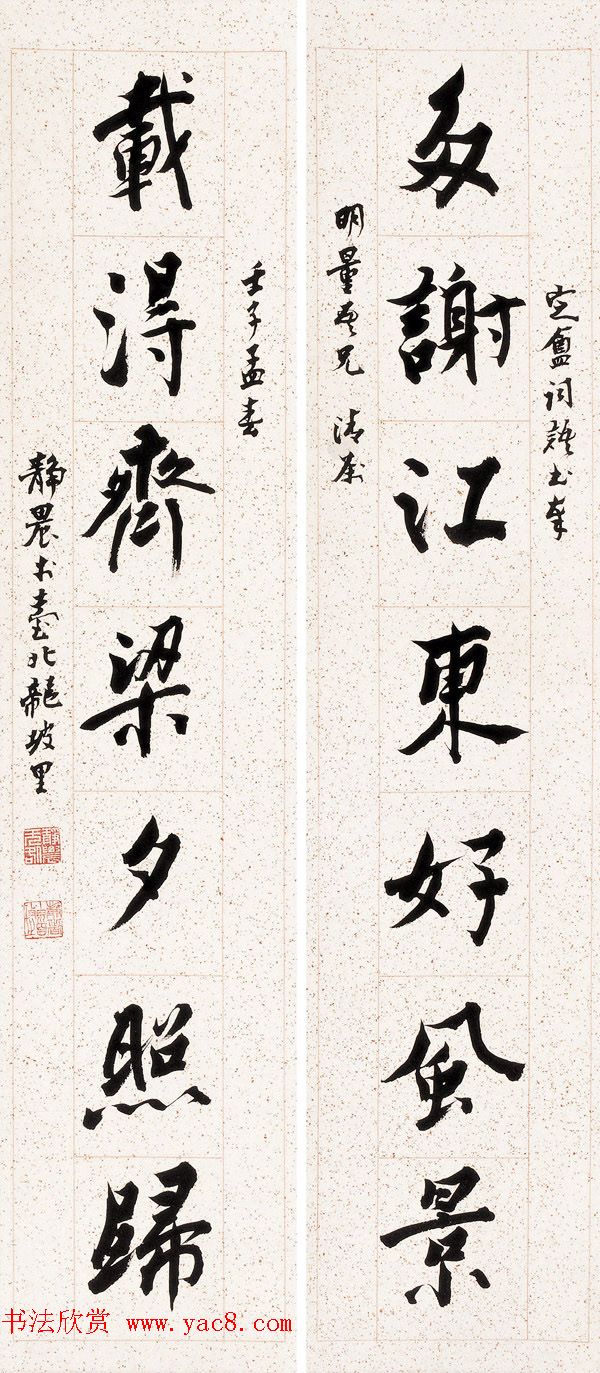 定盦词 书奉
多謝江東好風景
明量吾兄 清属
壬子孟春
載得齊梁夕照歸
靜農于臺北龍坡里
书法欣赏 www.yac8.com